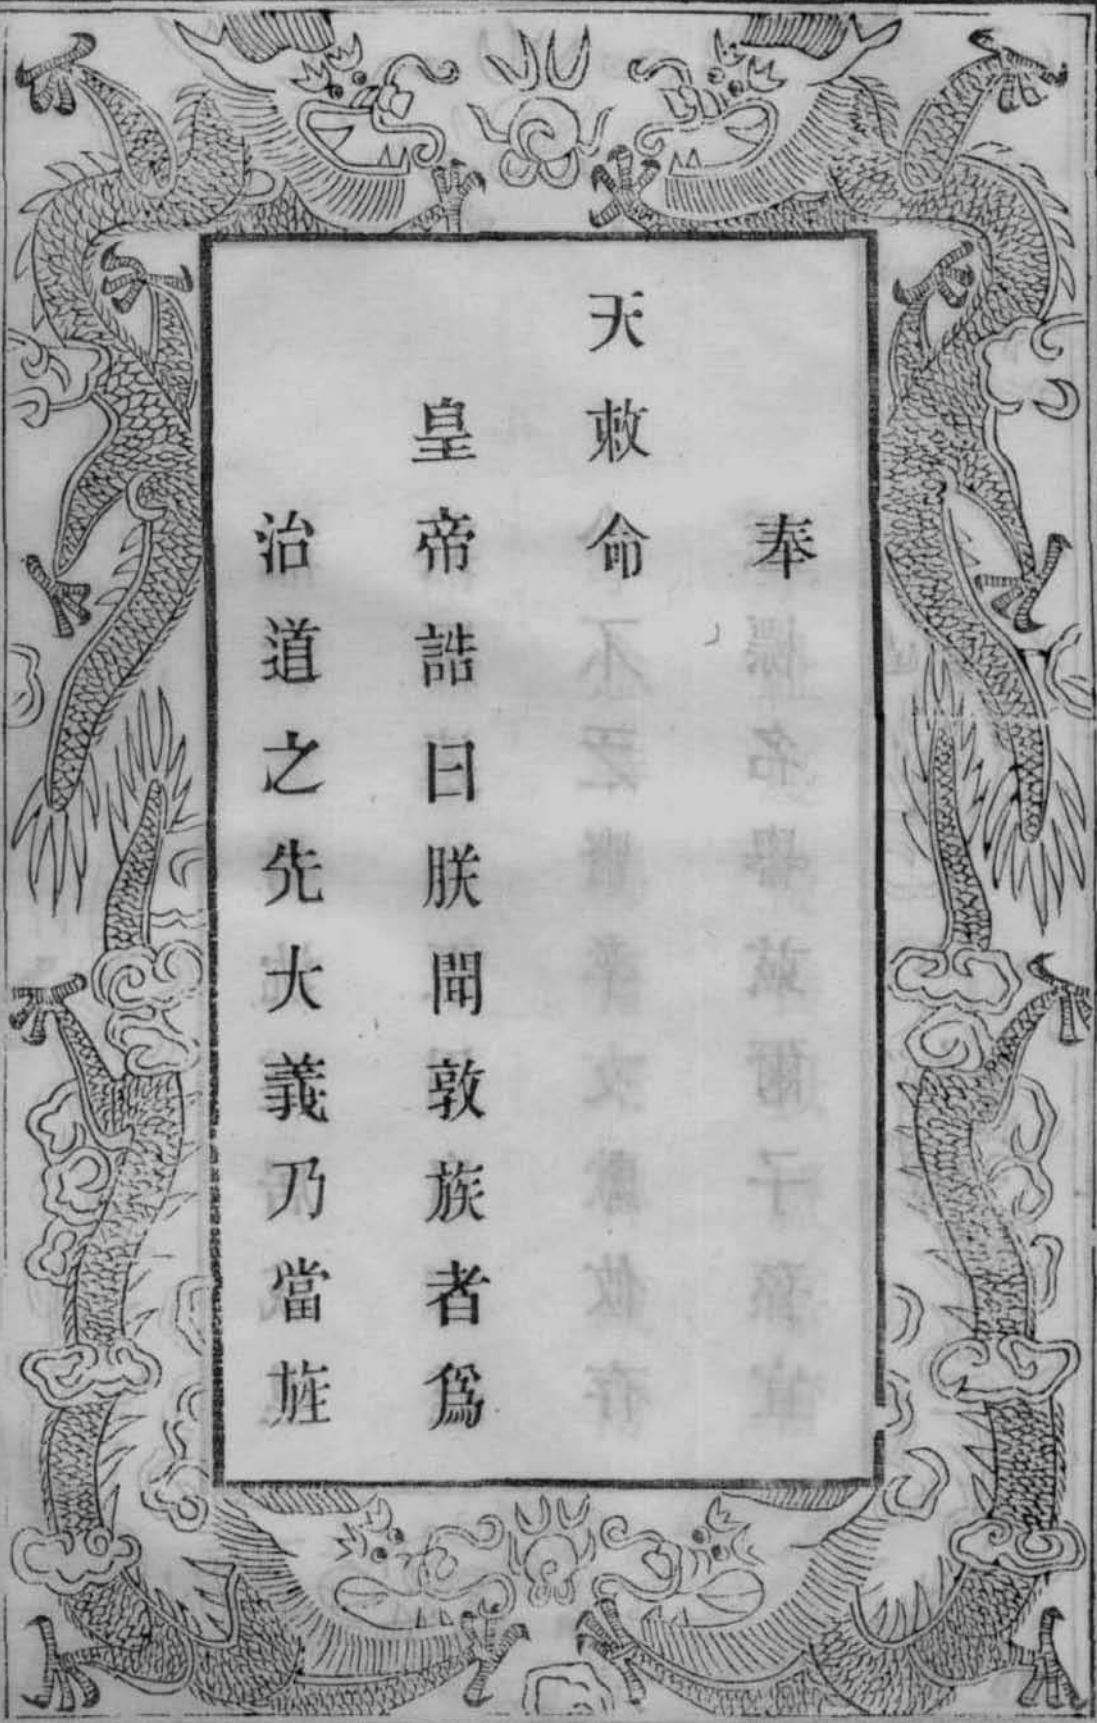 奉
天敕命
皇帝誥曰朕聞敦族者爲
治道之先大義乃當旌